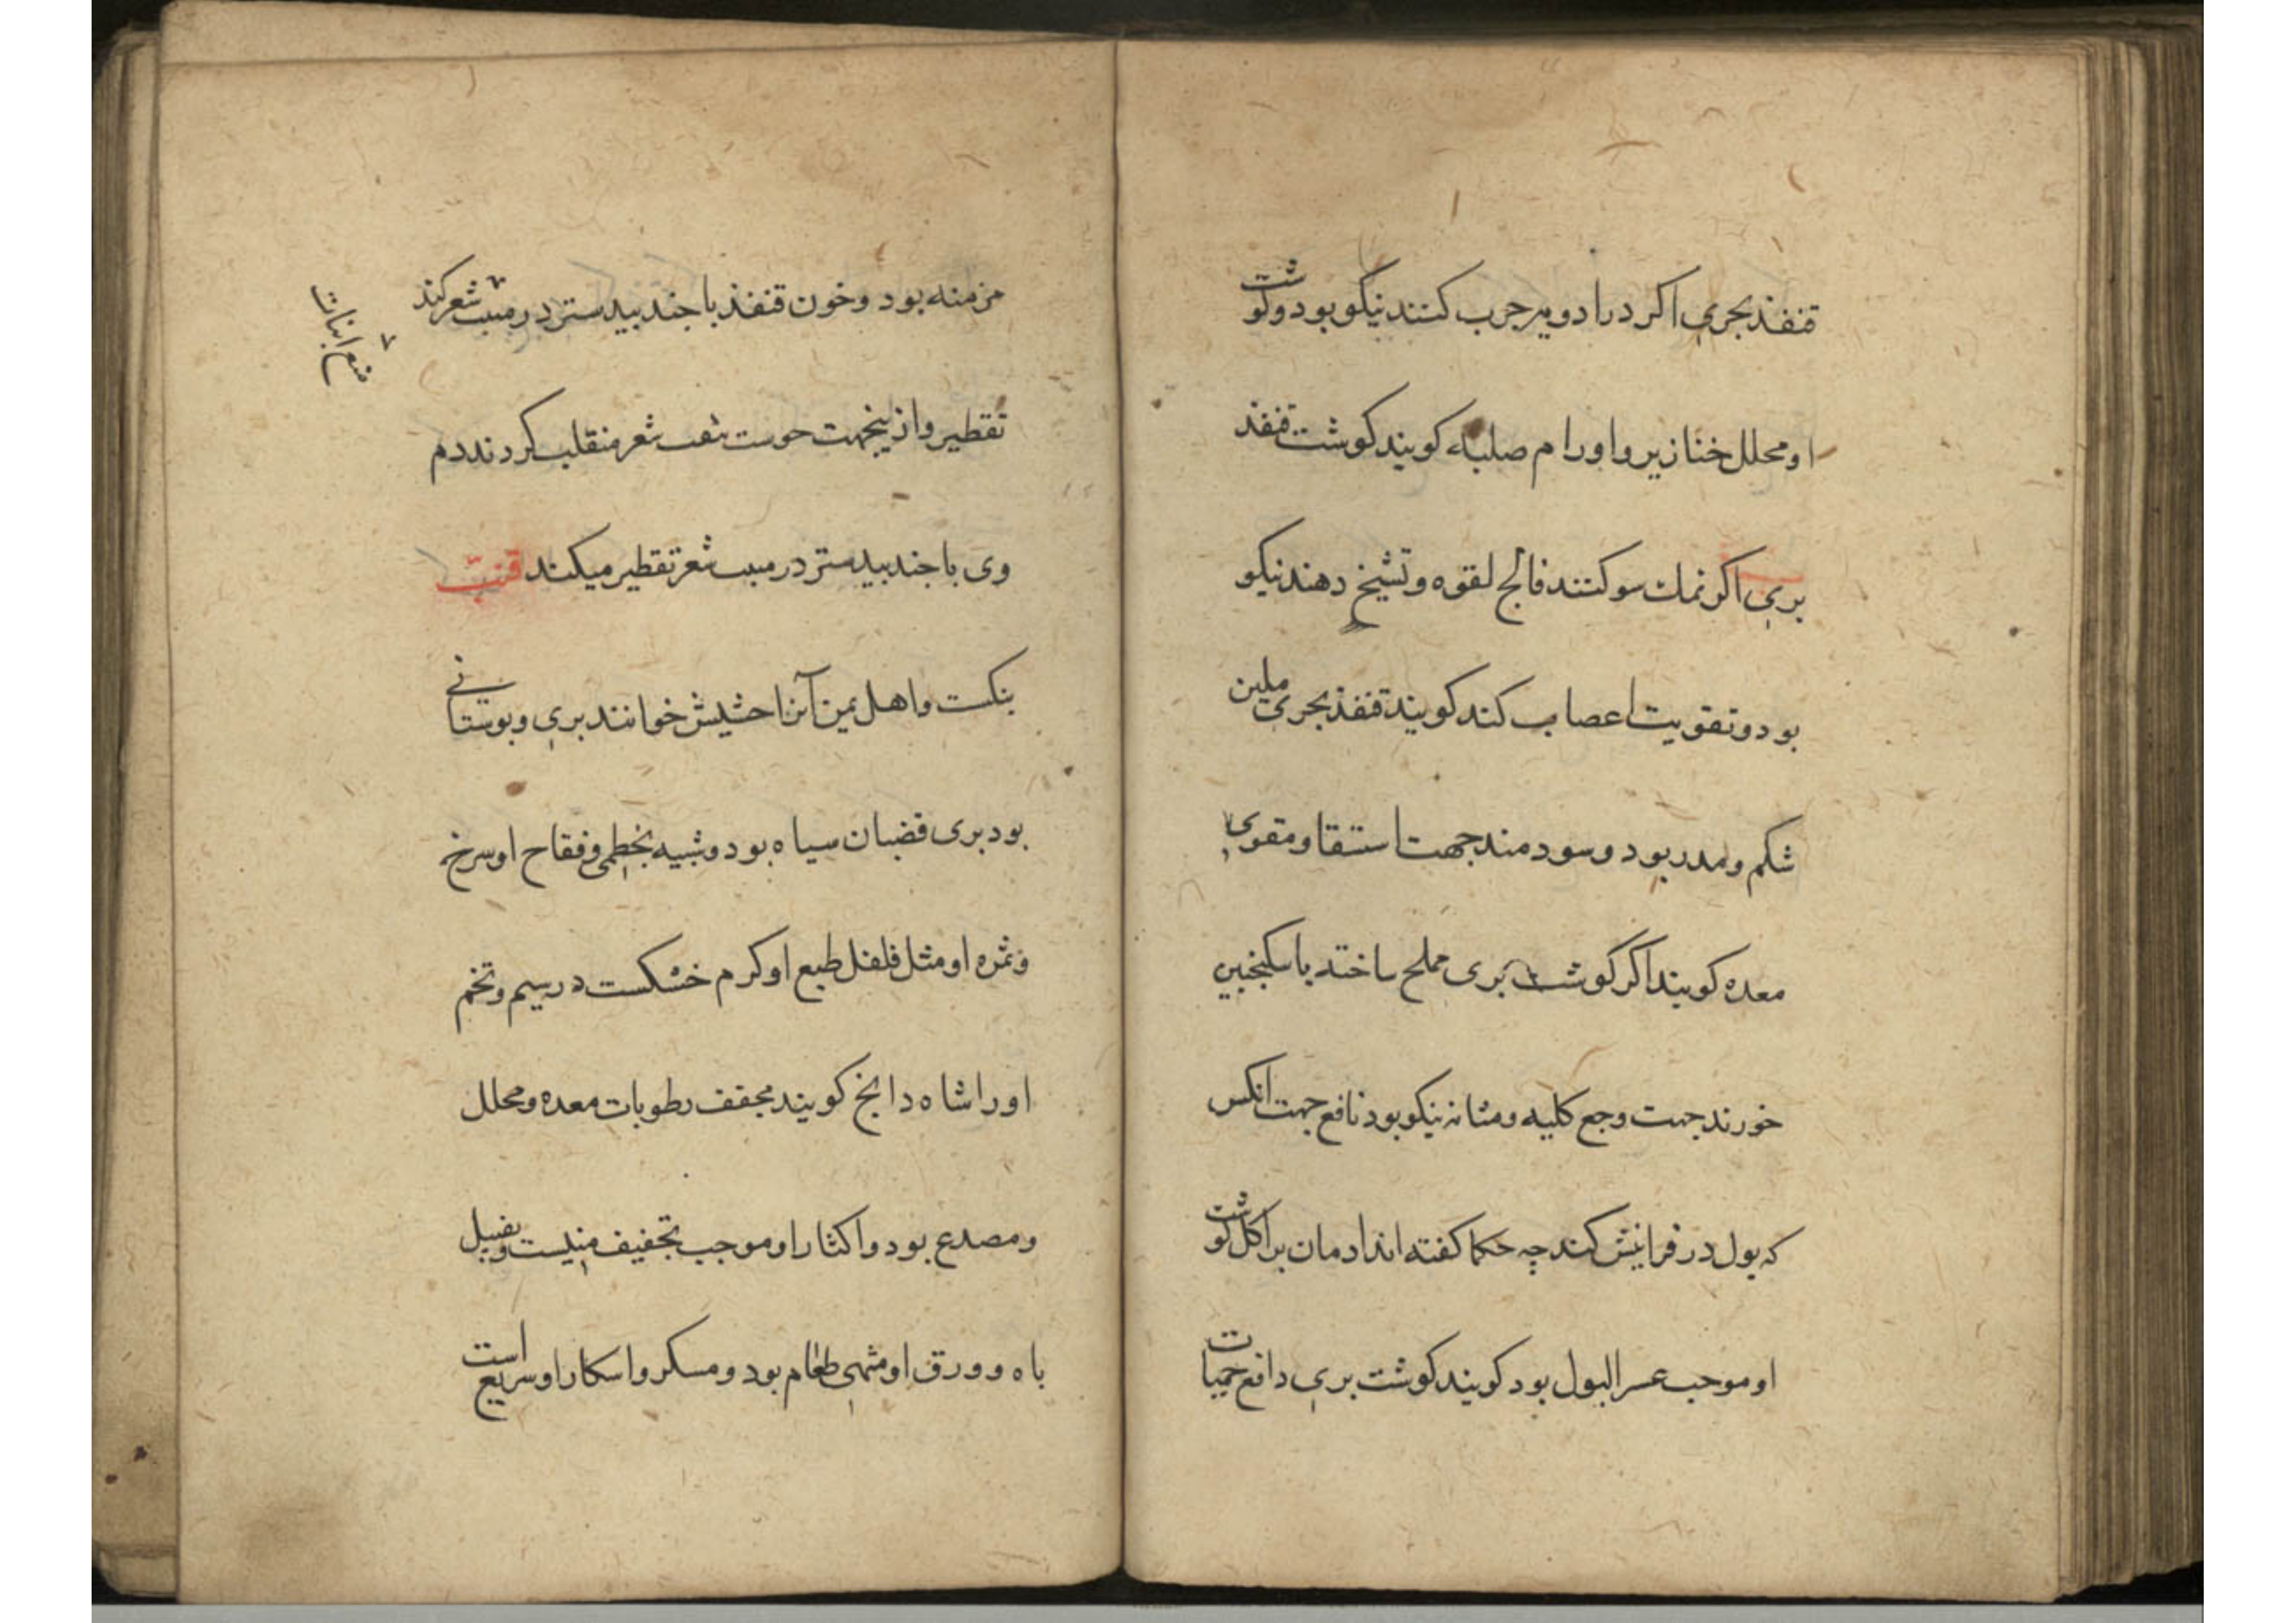 قنفذ بحری اکر درادویه جرب کنند نیکو بود وکوشت
او محلل خنازیر و اورام صلبه کویند کوشت قنفذ
بری اکر نمک سو کنند فالج لقوه و تشیخ دهند نیکو
بود و تقویت اعصاب کند کویند قنفذ بحری ملین
شکم و مدر بود و سودمند جهت استسقا و مقوی
معده کویند اکر کوشت بری مملح ساخته با سکنجبین
خورند جهت وجع کلیه و مثانه نیکو بود نافع جهت انکس
که بول در فراش کند چه حکما کفته اند ادمان بر اکل کوشت
او موجب عسر البول بود کویند کوشت بری دافع حمیات
مزمنه بود و خون قنفذ با جندبیدستر در منبت شعر کند
منع انبات
تقطیر و ازینجهت شعر منقلب کردند دم
وی با جندبیدستر در منبت شعر تقطیر میکند قنب
بنکست و اهل یمن آنرا حشیش خوانند بری و بوستانی
بود بری قضبان سیاه بود و شبیه بخطمی و فقاح او سرخ
و ثمره او مثل فلفل طبع او کرم خشکست در سیم و تخم
اورا شاه دانج کویند مجفف رطوبات معده و محلل
و مصدع بود و اکثار او موجب تجفیف منیست و
باه و ورق او مشهی طعام بود و مسکر و اسکار او سریع است